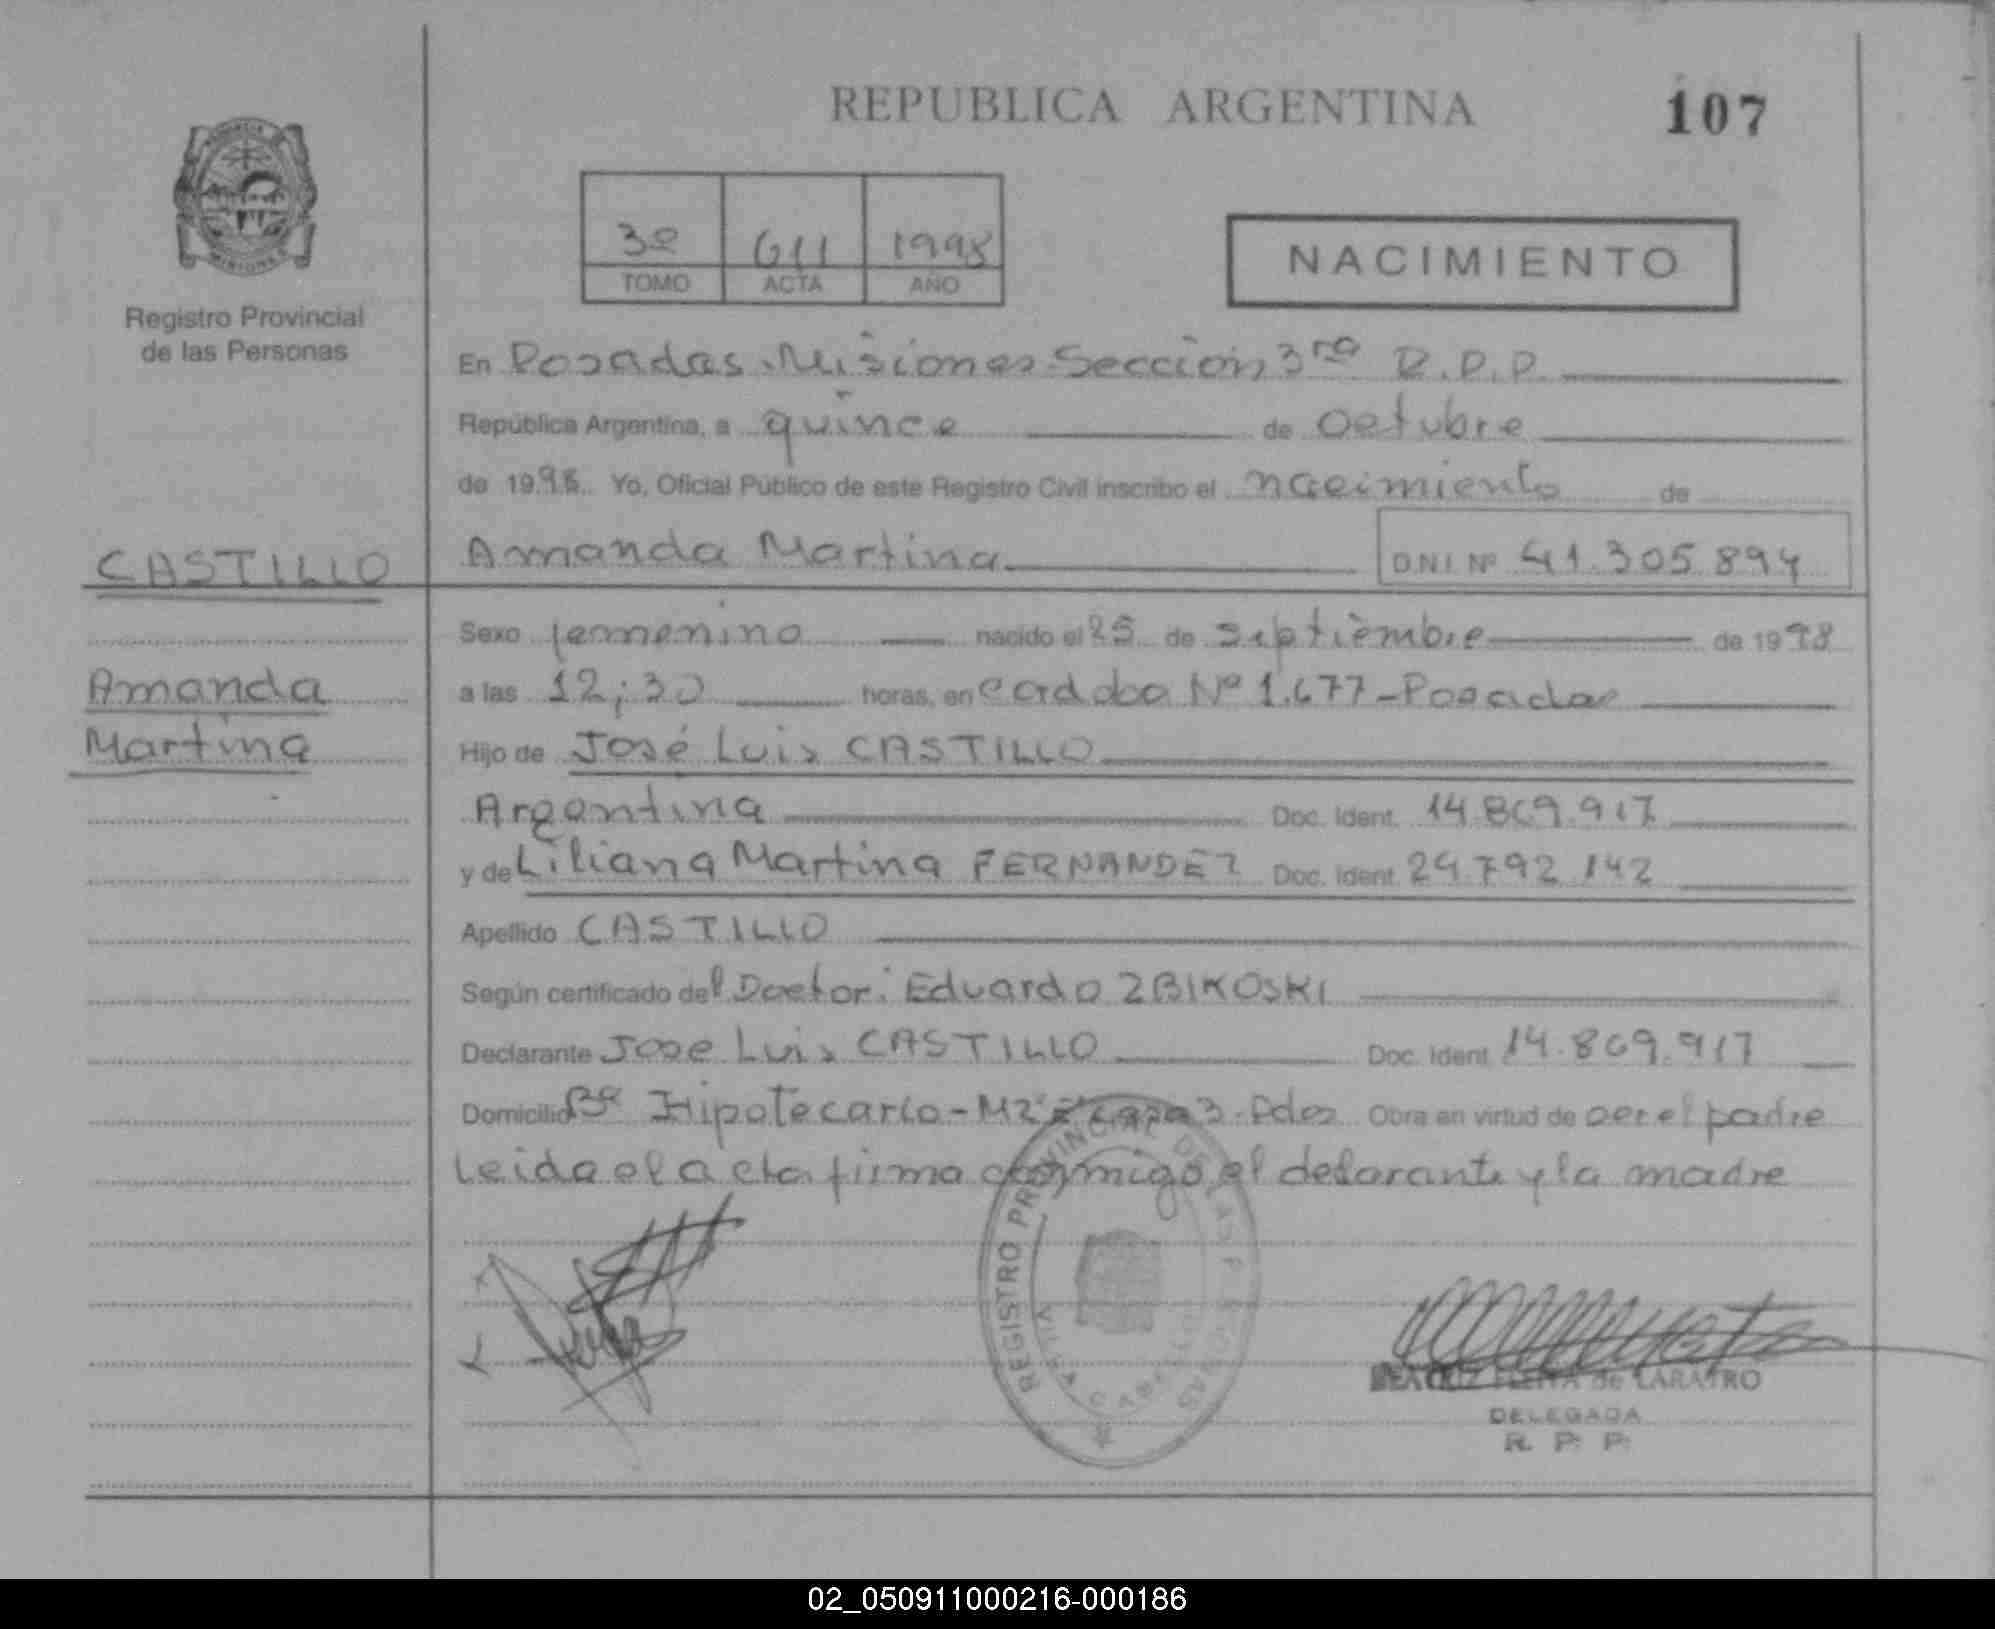 REPUBLICA ARGENTINA
107
3º 611 1998
TOMO ACTA AÑO
NACIMIENTO
MISIONES
Registro Provincial
de las Personas
En Posadas Misiones Sección 3ra R.P.P.
República Argentina, a quince de Octubre
de 1998 Yo, Oficial Público de este Registro Civil inscribo el nacimiento de
CASTILLO
Amanda Martina DNI Nº 41.305.894
Sexo femenino nacido el 25 de septiembre de 1998
Amanda
a las 12;30 horas, en Cordoba Nº 1.677-Posadas
Martina
Hijo de José Luis CASTILLO
Argentina Doc. Ident. 14.869.917
y de Liliana Martina FERNANDEZ Doc. Ident. 24.792.142
Apellido CASTILLO
Según certificado del Doctor: Eduardo ZBIKOSKI
Declarante Jose Luis CASTILLO Doc. Ident. 14.869.917
Domicilio Bº Hipotecario-MZ 3-Pdas Obra en virtud de ser el padre
Leida el acta firma conmigo el delarante y la madre
REGISTRO PROVINCIAL DE LAS PERSONAS
VILLA CABELLO
BEATRIZ de
DELEGADA
R. P. P.
02_050911000216-000186